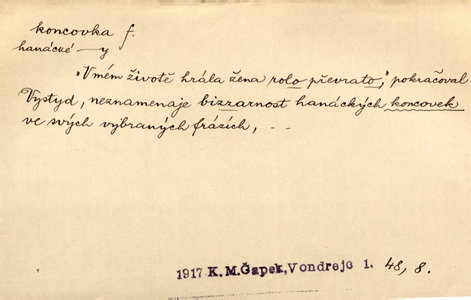 koncovka f.
hanácké —y
„V mém životě hrála žena rolo převrato,“ pokračoval
Vystyd, neznamenaje bizzarnost hanáckých koncovek
ve svých vybraných frázích, - -
1917 K.M.Čapek,Vondrejc 1. 48, 8.